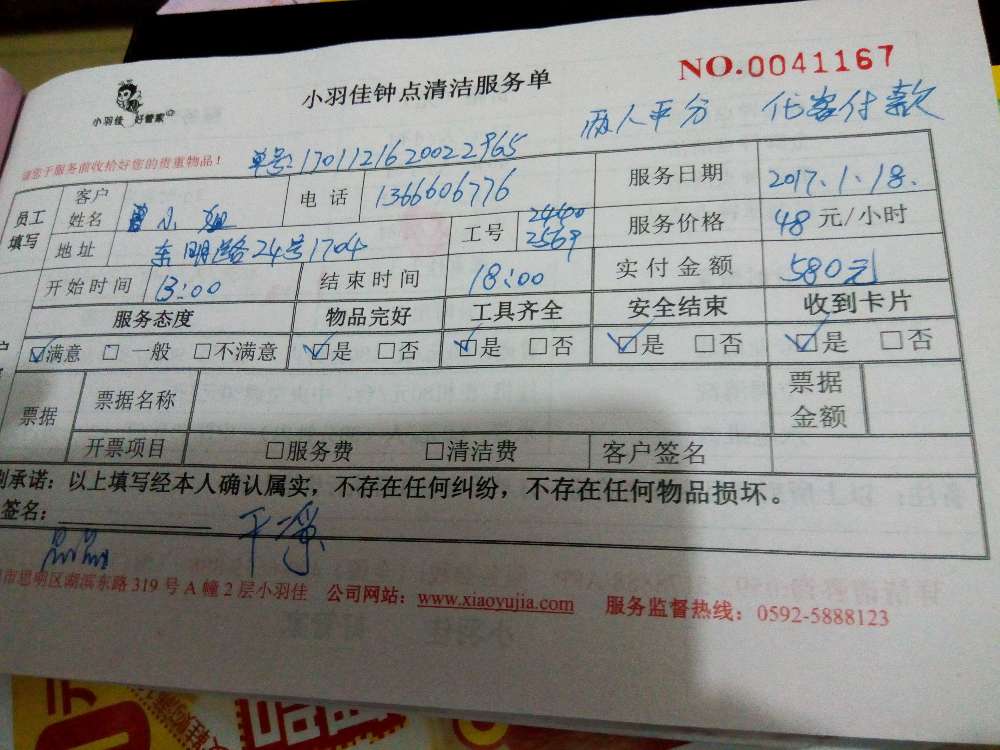 小羽佳 好管家
小羽佳钟点清洁服务单
NO.0041167
两人平分 代客付款
请您于服务前收拾好您的贵重物品！
单号:1701121620022965
员工填写 客户姓名 曾小姐 电话 1366606776 服务日期 2017.1.18.
地址 东明路24号1704 工号 24400 2569 服务价格 48元/小时
开始时间 13:00 结束时间 18:00 实付金额 580元
服务态度 物品完好 工具齐全 安全结束 收到卡片
☑满意 □一般 □不满意 ☑是 □否 ☑是 □否 ☑是 □否 ☑是 □否
票据 票据名称 票据金额
开票项目 □服务费 □清洁费 客户签名
承诺：以上填写经本人确认属实，不存在任何纠纷，不存在任何物品损坏。
签名：
干净
市思明区湖滨东路319号A幢2层小羽佳 公司网站：www.xiaoyujia.com 服务监督热线：0592-5888123